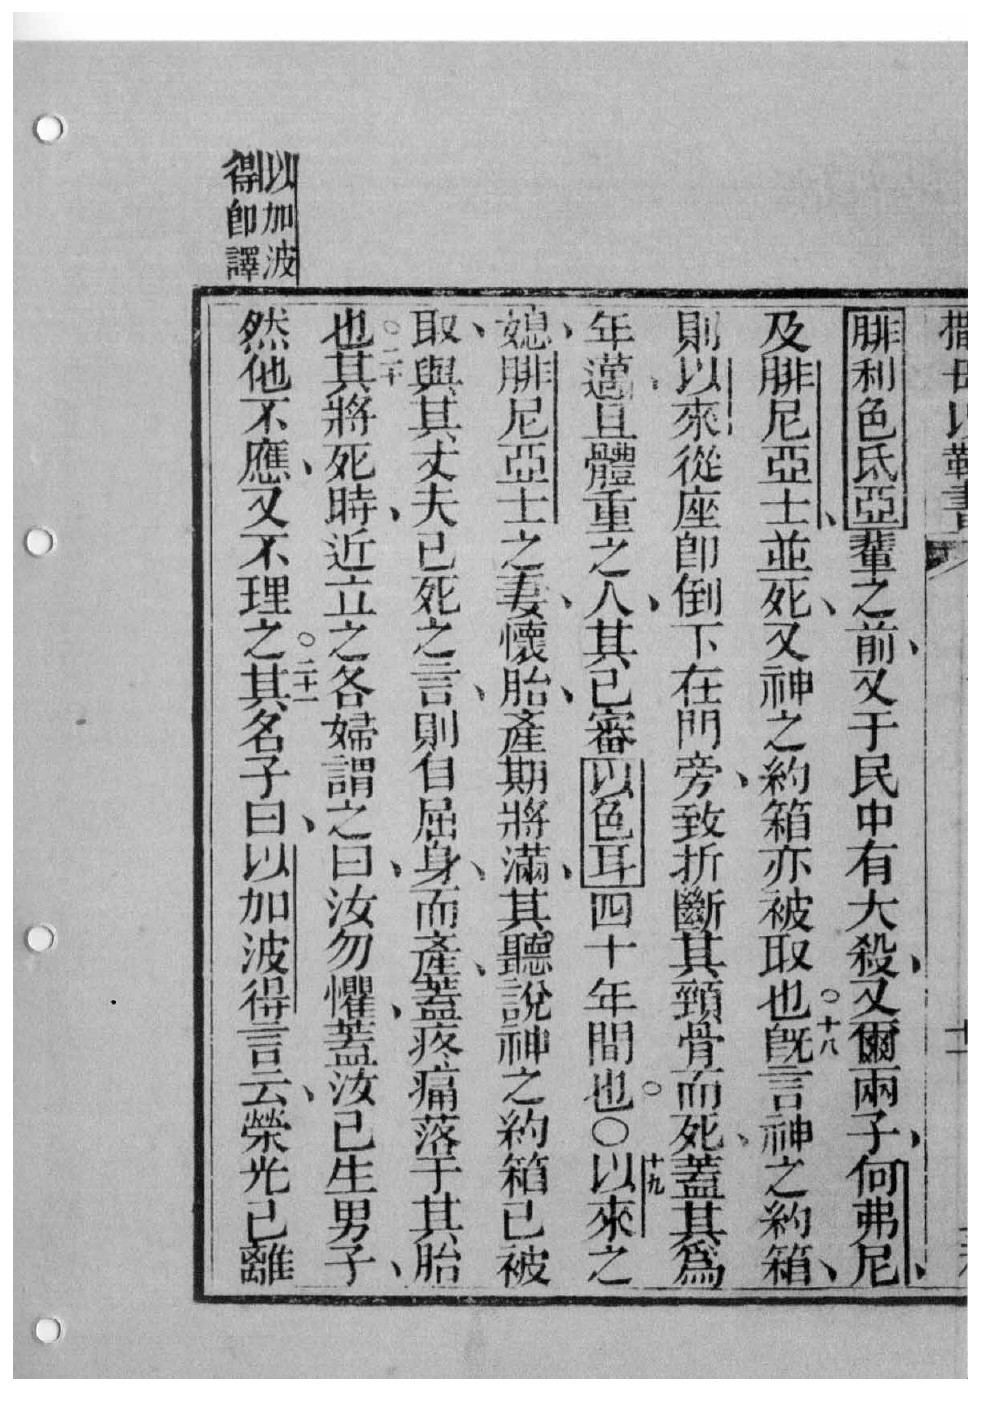 撒母以勒書
腓利色氐亞輩之前、又于民中有大殺、又爾兩子、何弗尼、
及腓尼亞士、並死、又神之約箱亦被取也○十八既言神之約箱、
則以來從座卽倒下在門旁、致折斷其頸骨而死、蓋其爲
年邁、且體重之人、其已審以色耳四十年間也○〇十九以來之
媳、腓尼亞士之妻、懷胎、產期將滿、其聽說神之約箱已被
取、與其丈夫已死之言、則自屈身、而產、蓋疼痛落于其胎
也○二十其將死時、近立之各婦謂之曰、汝勿懼、蓋汝已生男子、
然他不應、又不理之○二十一其名子曰、以加波得言云、榮光已離
以加波
得卽譯